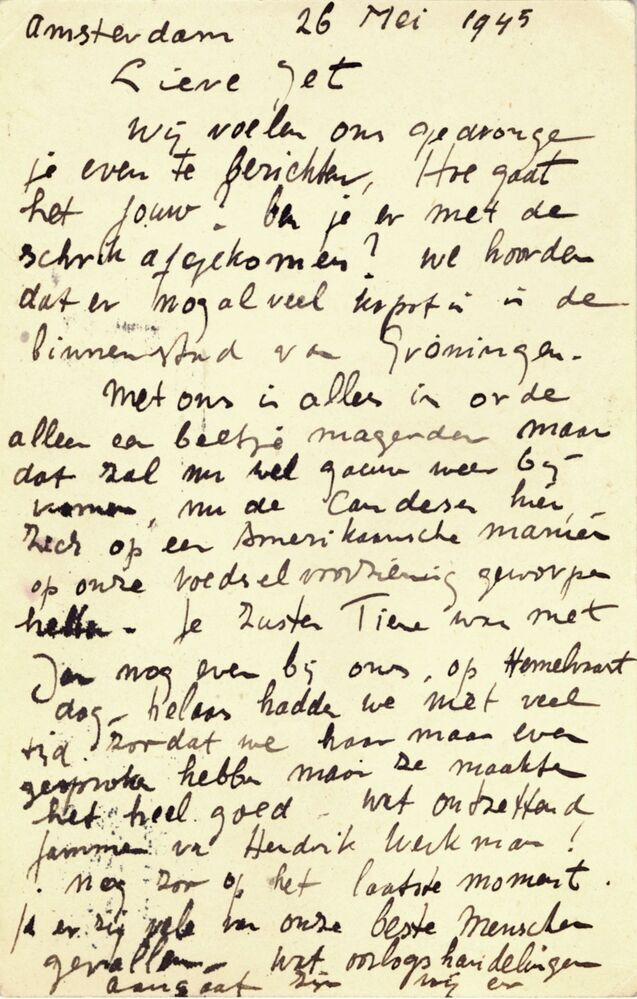 Amsterdam 26 Mei 1945
Lieve Jet
Wij voelen ons gedronge
je even te berichten, Hoe gaat
het jouw? ben je er met de
schrik afgekomen? we hoorden
dat er nogal veel kapot is in de
binnenstad van Groningen.
Met ons is alles in orde
alleen een beetje magerder maar
dat zal nu wel gauw weer bij
komen, nu de Canadesen hier
zich op een Amerikaansche manier
op onze voedselvoorziening geworpen
hebben. Je zuster Tiene was met
Jan nog even bij ons, op Hemelvaart
dag, helaas hadden we niet veel
tijd zoodat we haar maar even
gesproken hebben maar ze maakten
het heel goed - wat ontzettend
jammer van Hendrik Werkman!
nog zoo op het laatste moment.
Ja er zijn vele van onze beste Menschen
gevallen - wat oorlogshandelingen
aangaat zijn wij er